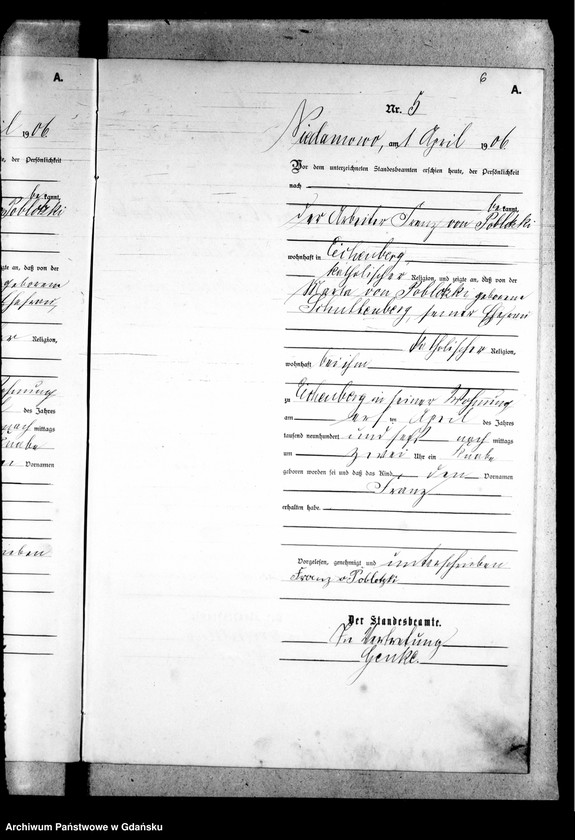 A.
il 1906
, der Persönlichkeit
be kannt,
Poblotzki
zte an, daß von der
geborene
Ehefrau,
Religion,
Wohnung
des Jahres
nach mittags
Knabe
Vornamen
ieben
6
A.
Nr. 5
Niedamowo, am 1 April 1906
Vor dem unterzeichneten Standesbeamten erschien heute, der Persönlichkeit
nach
be kannt,
der Arbeiter Franz von Poblotzki
wohnhaft in Eichenberg,
katholischer Religion, und zeigte an, daß von der
Maria von Poblotzki geborene
Schultenberg, seiner Ehefrau
katholischer Religion,
wohnhaft bei ihm
zu Eichenberg in seiner Wohnung
am ten April des Jahres
tausend neunhundert und sechs nach mittags
um zwei Uhr ein Knabe
geboren worden sei und daß das Kind den Vornamen
Franz
erhalten habe.
Vorgelesen, genehmigt und unterschrieben
Franz v Poblotzki
Der Standesbeamte.
In Vertretung
Archiwum Państwowe w Gdańsku